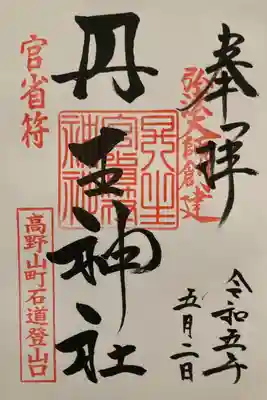 奉拝
弘法大師創建
丹生神社
丹生官省符神社
官省符
高野山町石道登山口
令和五年
五月二日